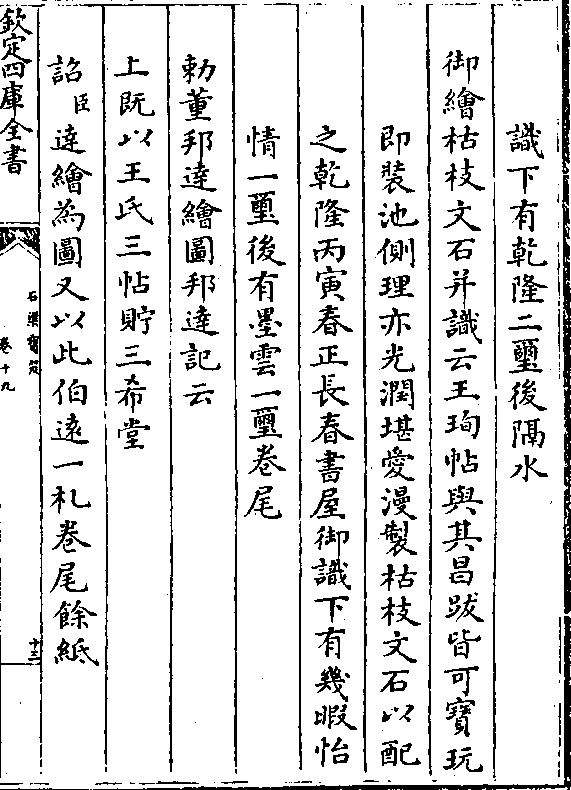 識下有乾隆二璽後隔水
御繪枯枝文石并識云王珣帖與其昌跋皆可寶玩
即裝池側理亦光潤堪愛漫製枯枝文石以配
之乾隆丙寅春正長春書屋御識下有幾暇怡
情一璽後有墨雲一璽卷尾
勅董邦達繪圖邦達記云
上既以王氏三帖貯三希堂
詔臣達繪為圖又以此伯遠一札卷尾餘紙
欽定四庫全書
石渠寶笈
卷十九
十三